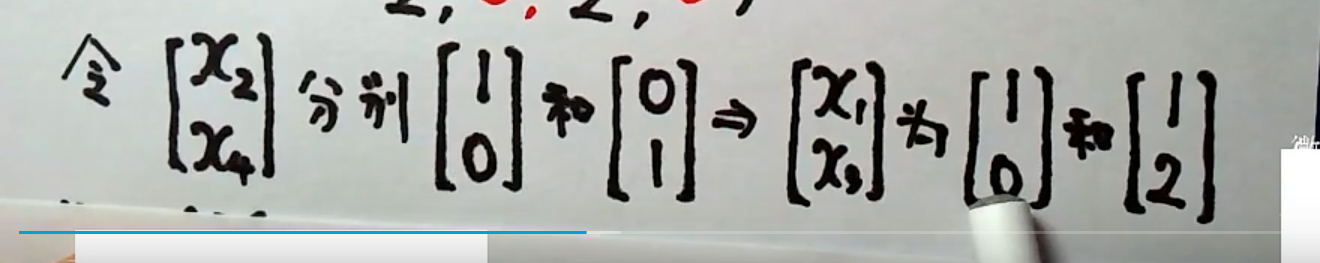 令 [x₂ x₄] 分别 [1 0] 和 [0 1] ⇒ [x₁ x₃] 为 [1 0] 和 [1 2]